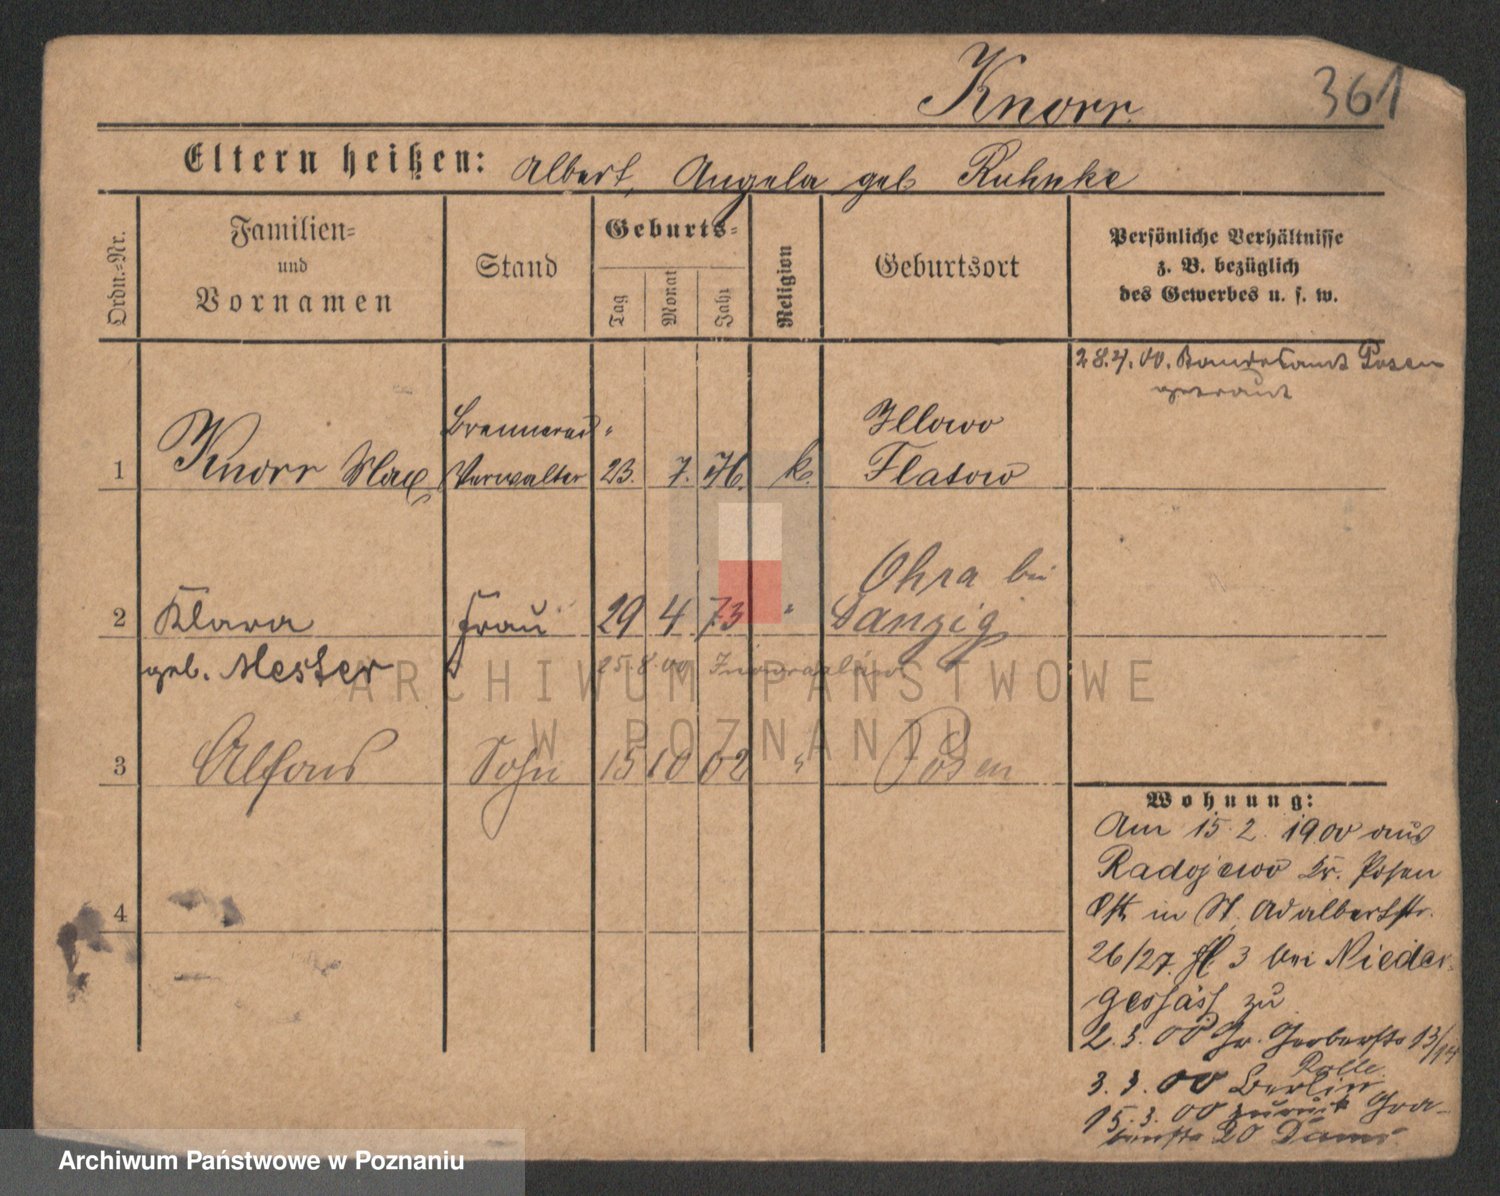 Knorr
361
Eltern heißen: Albert, Angela geb Ruhnke
Ordn.-Nr.
Familien-
und
Vornamen
Stand
Geburts-
Tag
Monat
Jahr
Religion
Geburtsort
Persönliche Verhältnisse
z. B. bezüglich
des Gewerbes u. s. w.
28.4.00. Standesamt Posen
getraut
1 Knorr Max
Brennerei-
Verwalter
23. 7. 76. k.
Illowo
Flatow
2 Klara
geb. Mester
Frau
29 4 73 "
Ohra bei
Danzig
25.8.00
3 Alfons Sohn 15 10 02 " Posen
4
Wohnung:
Am 15.2.1900 aus
Radojewo Kr. Posen
Ost in St. Adalbertstr.
26/27. H. 3 bei Nieder-
gesäss zu
2.3.00 Gr. Gerberstr 13/14
3.3.00 Berlin
15.3.00 zurück Gra-
benstr 20
ARCHIWUM PAŃSTWOWE
W POZNANIU
Archiwum Państwowe w Poznaniu